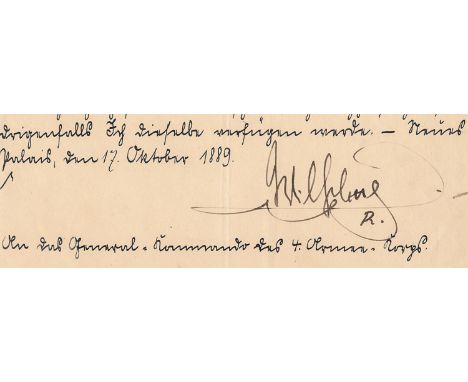 drigenfalls Ich dieselbe verfügen werde. – Neues
Palais, den 17. Oktober 1889.
Wilhelm
R.
An das General-Kommando des 4. Armee-Korps.